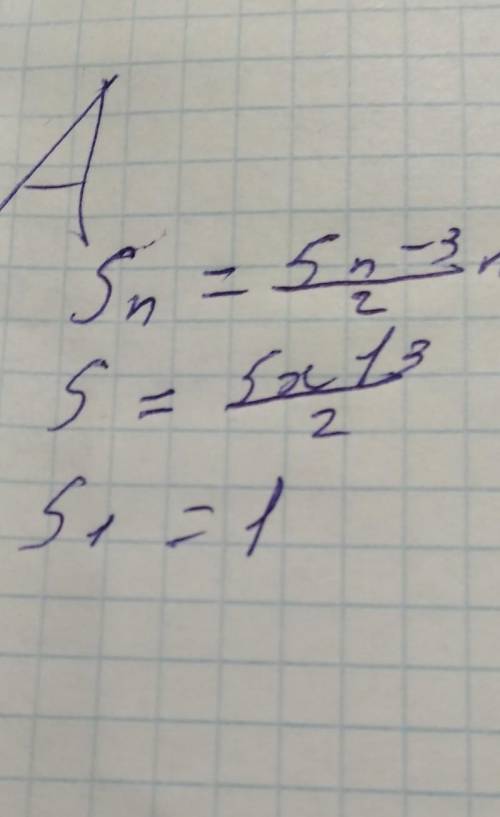 A
Sn = 5n-3/2 n
S = 5x13/2
S1 = 1